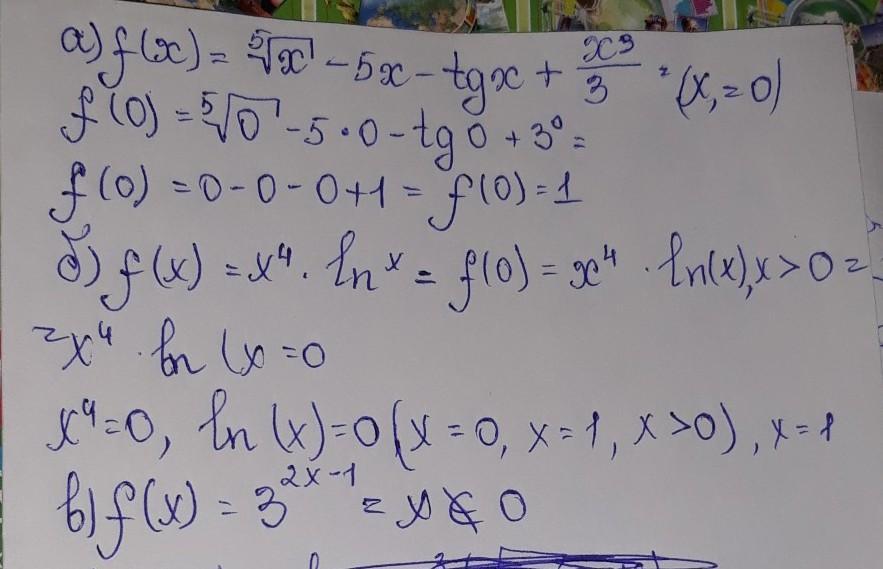 а) f(x) = ⁵√x - 5x - tgx + x³/3 = (x, = 0)
f(0) = ⁵√0 - 5 · 0 - tg 0 + 3⁰ =
f(0) = 0 - 0 - 0 + 1 = f(0) = 1
б) f(x) = x⁴ · lnˣ = f(0) = x⁴ · ln(x), x > 0 =
= x⁴ · ln (x = 0
x⁴ = 0, ln (x) = 0 (x = 0, x = 1, x > 0), x = 1
в) f(x) = 3²ˣ⁻¹ = 0